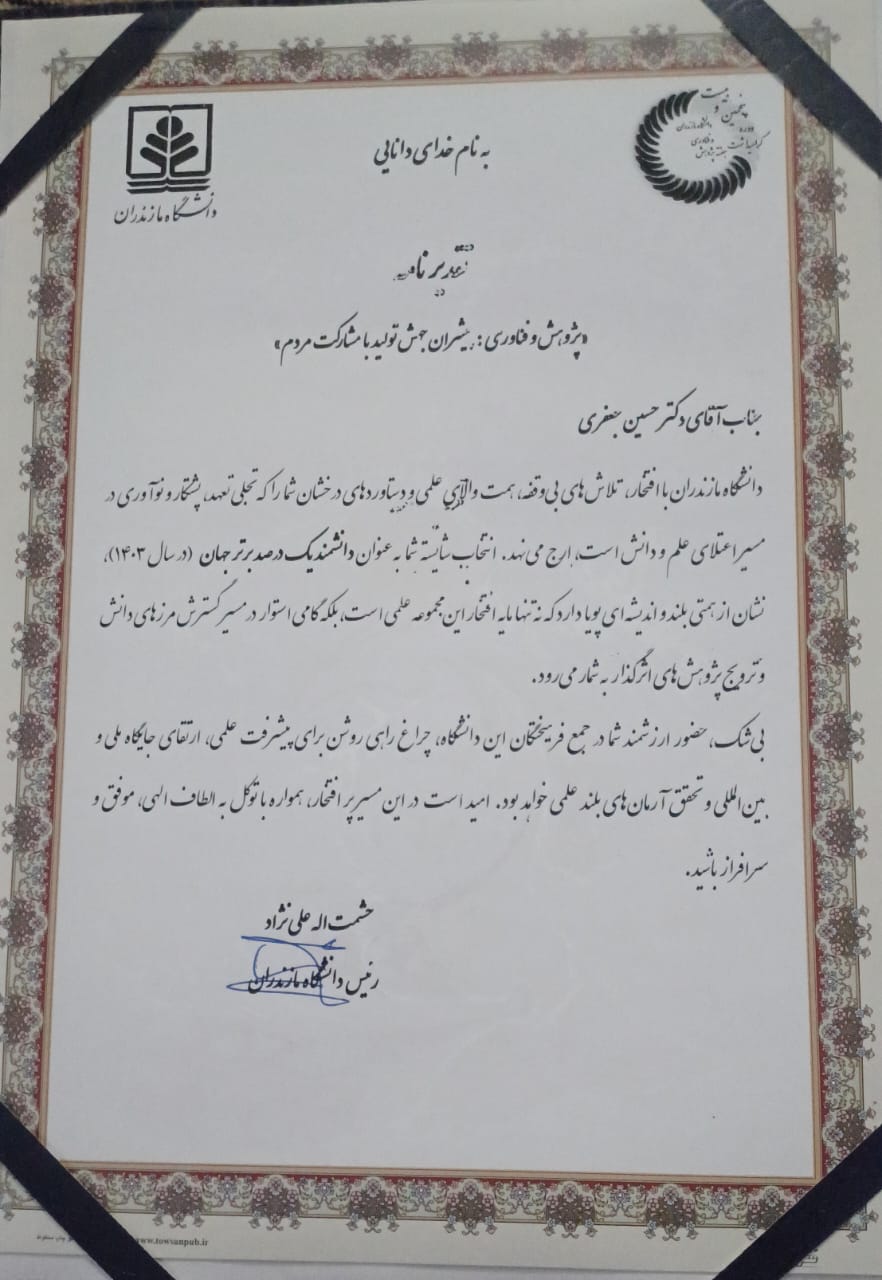 بیست
و
پنجمین
دوره
گرامیداشت
هفته پژوهش
و فناوری
دانشگاه مازندران
به نام خدای دانایی
دانشگاه مازندران
تقدیر نامه
«پژوهش و فناوری: پیشران جهش تولید با مشارکت مردم»
جناب آقای دکتر حسین جعفری
دانشگاه مازندران با افتخار، تلاش های بی وقفه، همت والای علمی و دستاوردهای درخشان شما را که تجلی تعهد، پشتکار و نوآوری در
مسیر اعتلای علم و دانش است، ارج می نهد. انتخاب شایسته شما به عنوان دانشمند یک درصد برتر جهان (در سال ۱۴۰۳)،
نشان از همتی بلند و اندیشه ای پویا دارد که نه تنها مایه افتخار این مجموعه علمی است، بلکه گامی استوار در مسیر گسترش مرزهای دانش
و ترویج پژوهش های اثرگذار به شمار می رود.
بی شک، حضور ارزشمند شما در جمع فرهیختگان این دانشگاه، چراغ راهی روشن برای پیشرفت علمی، ارتقای جایگاه ملی و
بین المللی و تحقق آرمان های بلند علمی خواهد بود. امید است در این مسیر پر افتخار، همواره با توکل به الطاف الهی، موفق و
سرافراز باشید.
حشمت اله علی نژاد
رئیس دانشگاه مازندران
www.towsanpub.ir